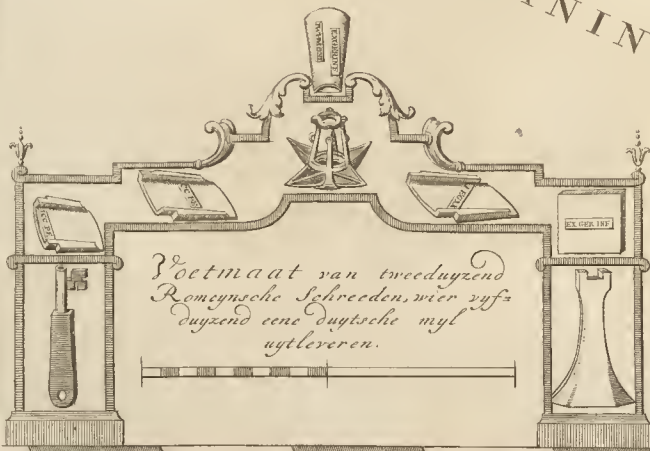 NIN
EX GER INF
Voetmaat van tweeduyzend
Romeynsche Schreeden, wier vyf=
duyzend eene duytsche myl
uytleveren.